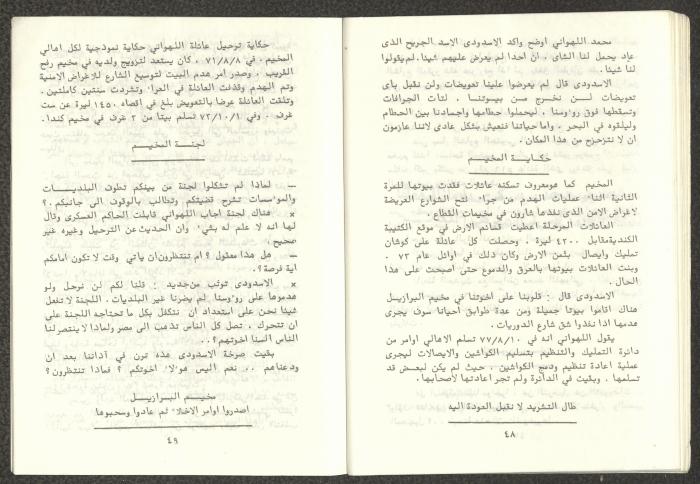 محمد اللهواني اوضح واكد الاسدودى الاسد الجريح الذى
عاد يحمل لنا الشاى ، ان احدا لم يعرض عليهم شيئا . لم يقولوا
لنا شيئا .
الاسدودى قال لم يعرضوا علينا تعويضات ولن نقبل بأى
تعويضات لـــن نخرج مـــن بيـوتنــا . لتأت الجرافات
وتسقطها فوق رءوسنا ، ليحملوا حطامها واجسادنا بين الحطام
وليلقوه في البحر . واما حياتنا فنعيش بشكل عادى لاننا عازمون
ان لا نتزحزح من هذا المكان .
حكــايـــة المخيــم
المخيم كما هو معروف تسكنه عائلات فقدت بيوتها للمرة
الثانية اثناء عمليات الهدم من جراء فتح الشوارع العريضة
لاغراض الامن الذى نفذها شارون في مخيمات القطاع .
العائلات المرحلة اعطيت قسائم الارض في موقع الكتيبة
الكندية مقابل ٤٢٠٠ ليرة . وحصلت كل عائلة على كوشان
تمليك وايصال بثمن الارض وكان ذلك في اوائل عام ٧٣ .
وبنت العائلات بيوتها بالعرق والدموع حتى اصبحت على هذا
الحال .
الاسدودى قال : قلوبنا على اخوتنا في مخيم البرازيـل
هناك اقاموا بيوتا جميلة ومن عدة طوابق احيانا سوف يجرى
هدمها اذا نفذوا شق شارع الدوريات .
يقول اللهواني انه في ٧٧/٨/١٠ تسلم الاهالي اوامر من
دائرة التمليك والتنظيم بتسليم الكواشين والايصالات ليجرى
عملية اعادة تنظيم ودمج الكواشين ، حيث لم يكن لبعض قد
تسلمها . وبقيت في الدائرة ولم تجر اعادتها لأصحابها .
طال التشريد لا نقبل العودة اليه
٤٨
حكاية ترحيل عائلة اللهواني حكاية نموذجية لكل اهالي
المخيم . في ٧١/٨/٨ ، كان يستعد لتزويج ولديه في مخيم رفح
القريب . وصدر أمر هدم البيت لتوسيع الشارع للاغراض الامنية
وتم الهدم وقذفت العائلة في العراء وتشردت سنتين كاملتين .
وتلقت العائلة عرضا بالتعويض بلغ في اقصاه ١٤٥٠ ليرة عن ست
غرف . وفي ٧٣/١٠/١ تسلم بيتا من ٣ غرف في مخيم كندا .
لجنــة المخيــم
ــ لماذا لم تشكلوا لجنة من بينكم تطوف البلديـــات
والمؤسسات تشرح قضيتكم وتطالب بالوقوف الى جانبكم . ؟
× هناك لجنة اجاب اللهواني قابلت الحاكم العسكرى وقال
لها انه لا علم له بشيء وان الحديث عن الترحيل وغيره غير
صحيح .
ــ هل هذا معقول ؟ ام تنتظرون ان ياتي وقت لا تكون امامكم
اية فرصة ؟ .
× الاسدودى توثب من جديد : قلنا لكم لن نرحل ولو
هدموها على رءوسنا لم يضرنا غير البلديات . اللجنة لا تفعل
شيئا نحن على استعداد ان نتكفل بكل ما تحتاجه اللجنة على
ان تتحرك . تصل كل الناس تذهب الى مصر ولماذا لا ينتصر لنا
الناس السنا اخوتهم ؟ . .
بقيت صرخة الاسدودى هذه ترن في آذاننا بعد ان
ودعناهم . . نعم اليس هوءلاء اخوتكم ؟ فماذا تنتظرون ؟
مخيــم البــرازيــل
اصدروا اوامر الاخلاء ثم عادوا وسحبوها
٤٩